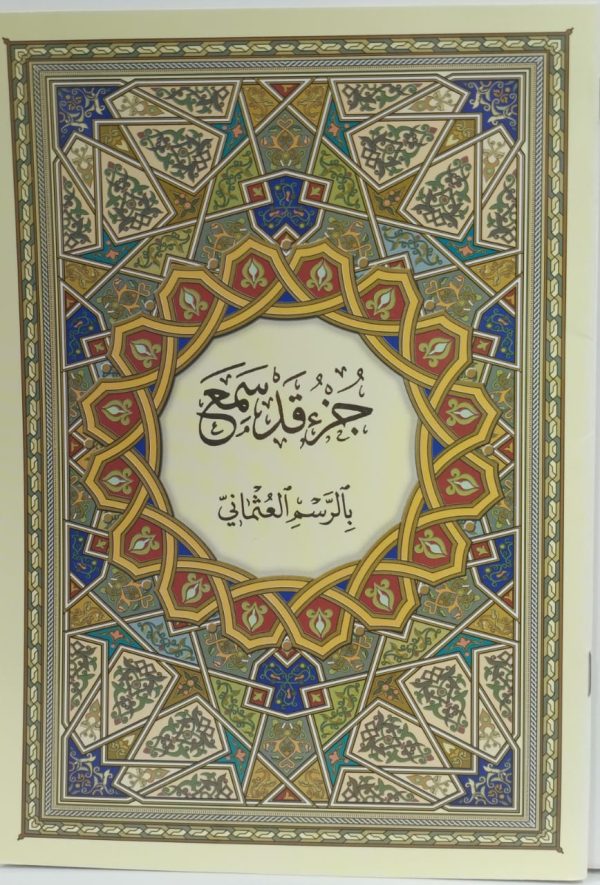 جُزْءُ قَدْ سَمِعَ
بِالرَّسْمِ الْعُثْمَانِيِّ